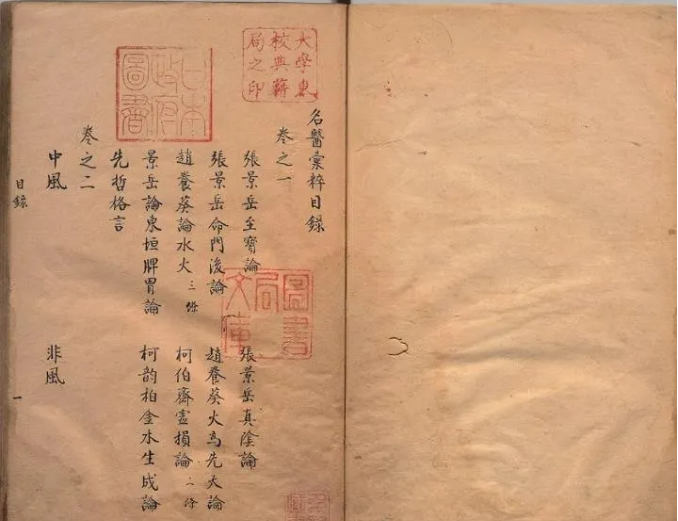 大學東
校典籍
局之印
日本
政府
圖書
名醫彙粹目錄
卷之一
張景岳至寶論　張景岳真陰論
張景岳命門後論　趙養葵火為先天論
趙養葵論水火三條　柯伯齋虛損論二條
景岳論東垣脾胃論　柯韵柏金水生成論
先哲格言
卷之二
中風　非風
目錄　一
圖書
局
文庫